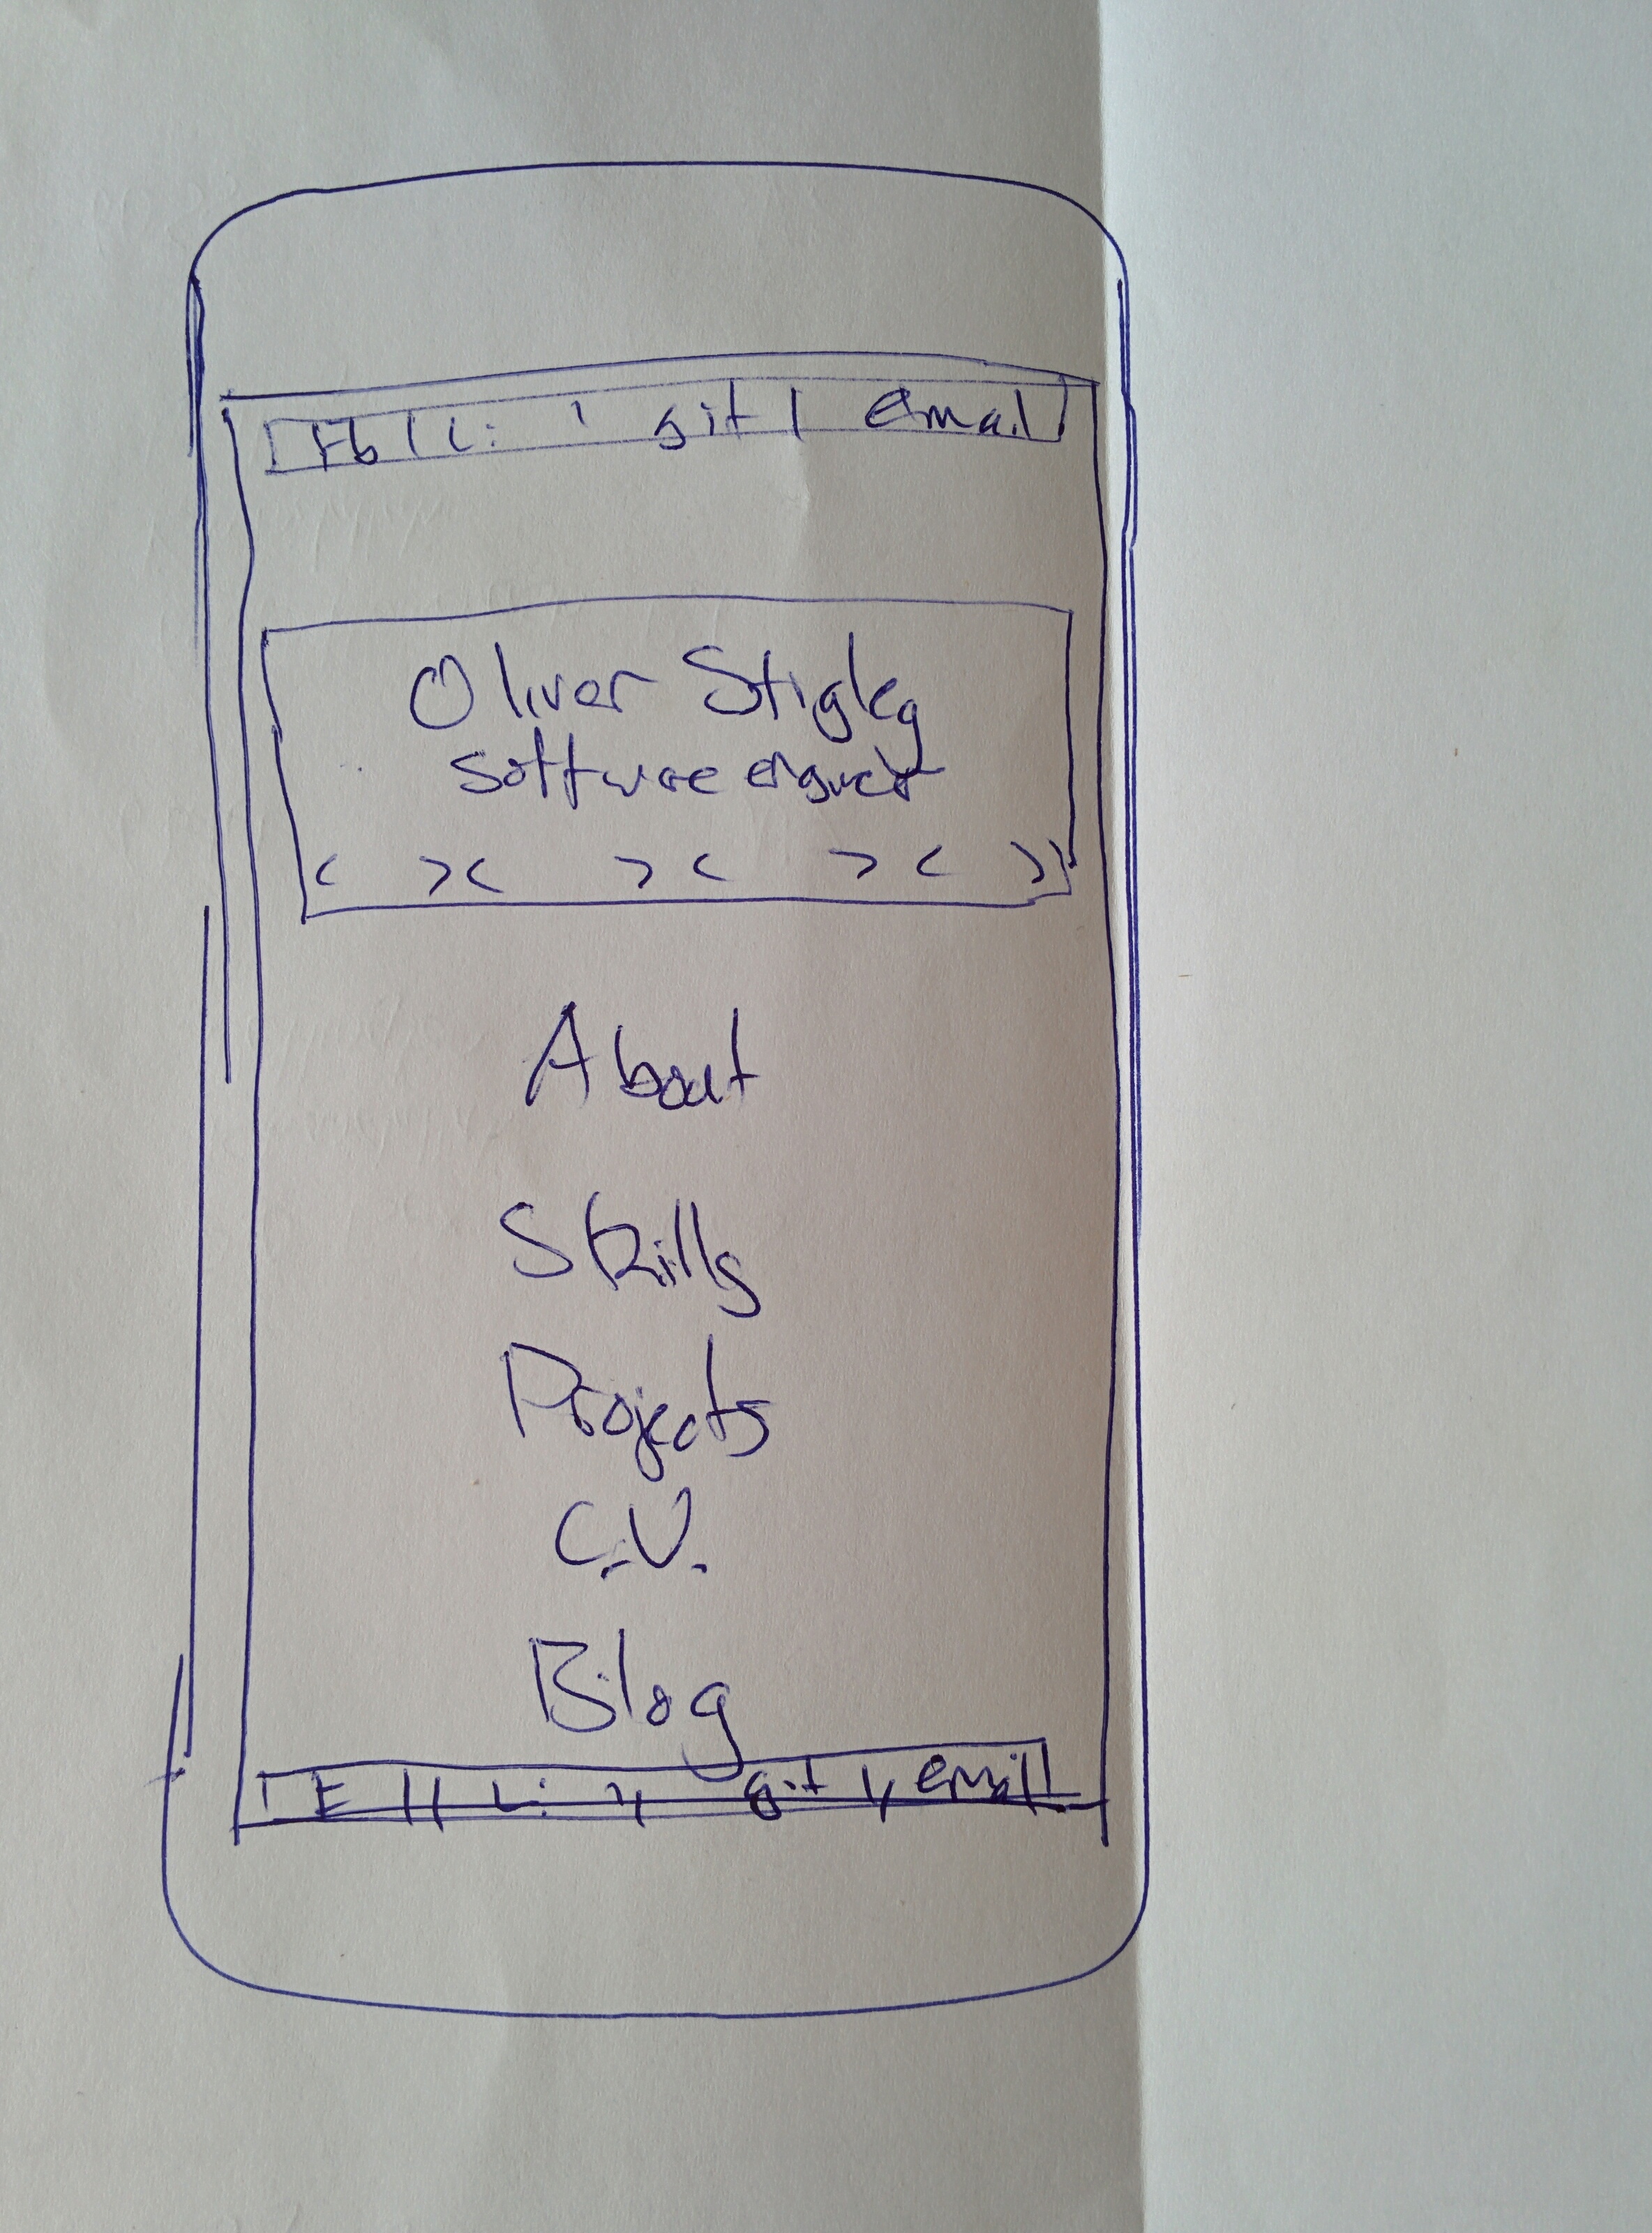 Fb | Li | git | email
Oliver Stigleg
Software
< > < > < > < >
About
Skills
Projects
C.V.
Blog
F || Li | git | email